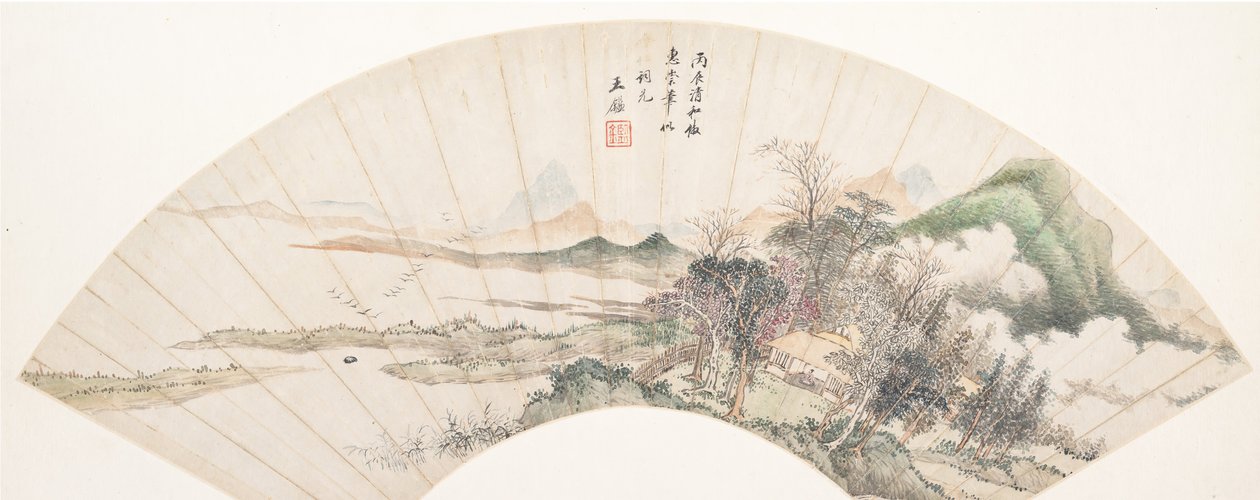 丙辰清和倣
惠崇筆似
詞兄
王鑑